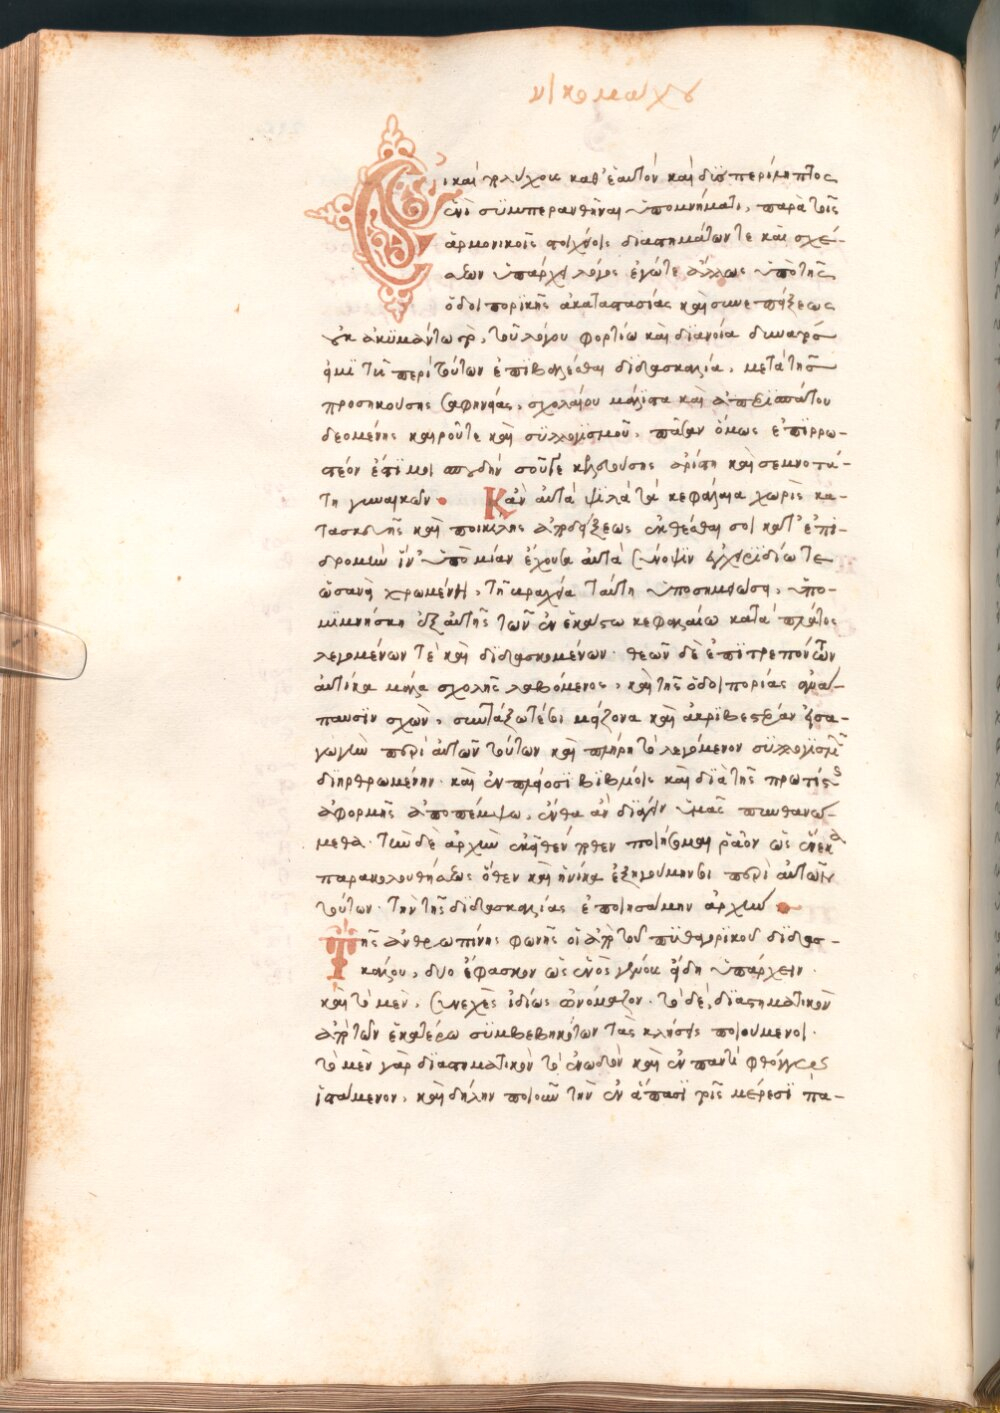 νικομάχου
Εἰ καὶ πλύχους καθ' ἑαυτὸν καὶ δυσπερίληπτος
ἑνὶ συμπερανθῆναι ὑπομνήματι, παρὰ τοῖς
ἁρμονικοῖς στοιχείοις διαστημάτων τε καὶ σχέ-
σεων ὑπάρχει λόγος ἐγώ τε ἄλλως ὑπὸ τῆς
ὁδοιπορικῆς ἀκαταστασίας καὶ συνεπήξεως
οὐκ ἀκυμάντως, τοῦ λόγου φορτίω καὶ διανοία δυνατὸς
εἰμὶ τῆ περὶ τούτων ἐπιβαλέσθαι διδασκαλία, μετὰ τῆς
προσηκούσης σαφηνείας, σχολαίου μάλιστα καὶ ἀπερισπάστου
δεομένης καιροῦ τε καὶ συλλογισμοῦ, πᾶσαν ὅμως ἐπιρρω-
στέον ἐστί μοι σπουδὴν σοῦ γε κελευούσης ἀρίστη καὶ σεμνοτά-
τη γυναικῶν. Κἂν αὐτὰ ψιλὰ τὰ κεφάλαια χωρὶς κα-
τασκευῆς καὶ ποικίλης ἀποδείξεως ἐκθέσθαι σοι κατ' ἐπι-
δρομὴν ἵν' ὑπὸ μίαν ἔχουσα αὐτὰ σύνοψιν ἐγχειριδίω τε
ὡσανεὶ χρωμένη, τῆ βραχεία ταύτη ὑποσημειώσει, ὑπο-
μιμνήσκη ἐξ αὐτῆς τῶν ἐν ἑκάστω κεφαλαίω κατὰ πλάτος
λεγομένων τὲ καὶ διδασκομένων. θεῶν δὲ ἐπιτρεπόντων
αὐτίκα μάλα σχολῆς λαβόμενος, καὶ τῆς ὁδοιπορίας ἀνά-
παυσιν σχὼν, συντάξω τέ σοι μείζονα καὶ ἀκριβεστέραν εἰσα-
γωγὴν περὶ αὐτῶν τούτων καὶ πλήρη τὸ λεγόμενον συλλογισμῶ
διηρθρωμένην. καὶ ἐν πλείοσι βιβλίοις καὶ διὰ τῆς πρώτης
ἀφορμῆς ἀποπέμψω, ἔνθα ἂν διάγειν ὑμᾶς πυνθανώ-
μεθα. τὴν δὲ ἀρχὴν ἐκεῖθέν ποθεν ποιήσομαι ῥᾶον ὡς ἕνεκα
παρακολουθήσεως ὅθεν καὶ ἡνίκα ἐξηγούμην σοι περὶ αὐτῶν
τούτων. τὴν τῆς διδασκαλίας ἐποιησάμην ἀρχὴν.
Τῆς ἀνθρωπίνης φωνῆς οἱ ἀπὸ τοῦ πυθαγορικοῦ διδασ-
καλίου, δύο ἔφασκον ὡς ἑνὸς γένους εἴδη ὑπάρχειν.
καὶ τὸ μὲν, συνεχὲς ἰδίως ὠνόμαζον. τὸ δὲ, διαστηματικὸν
ἀπὸ τῶν ἑκατέρω συμβεβηκότων τὰς κλήσεις ποιούμενοι.
τὸ μὲν γὰρ διαστηματικὸν τὸ ἔνωδον καὶ ἐν παντὶ φθόγγω
ἱστάμενον, καὶ δήλην ποιοῦν τὴν ἐν ἅπασι τοῖς μέρεσι πα-